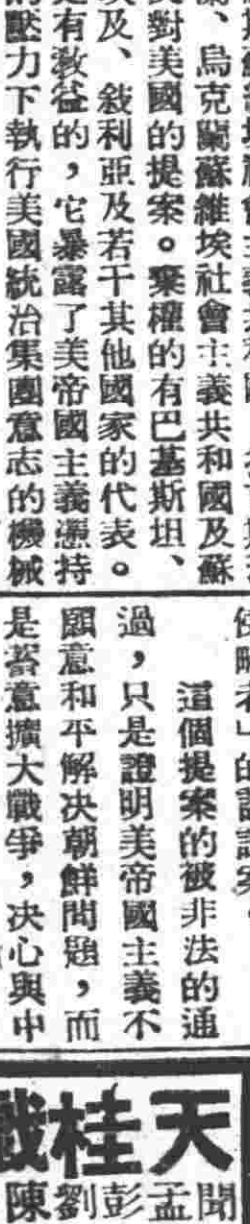 、烏克蘭蘇維埃社會主義共和國及蘇
對美國的提案。棄權的有巴基斯坦、
及、敍利亞及若干其他國家的代表。
有教益的，它暴露了美帝國主義憑持
壓力下執行美國統治集團意志的機械
這個提案的被非法的通
過，只是證明美帝國主義不
願意和平解决朝鮮問題，而
是蓄意擴大戰爭，决心與中
天桂戲
聞
孟
彭
劉
陳